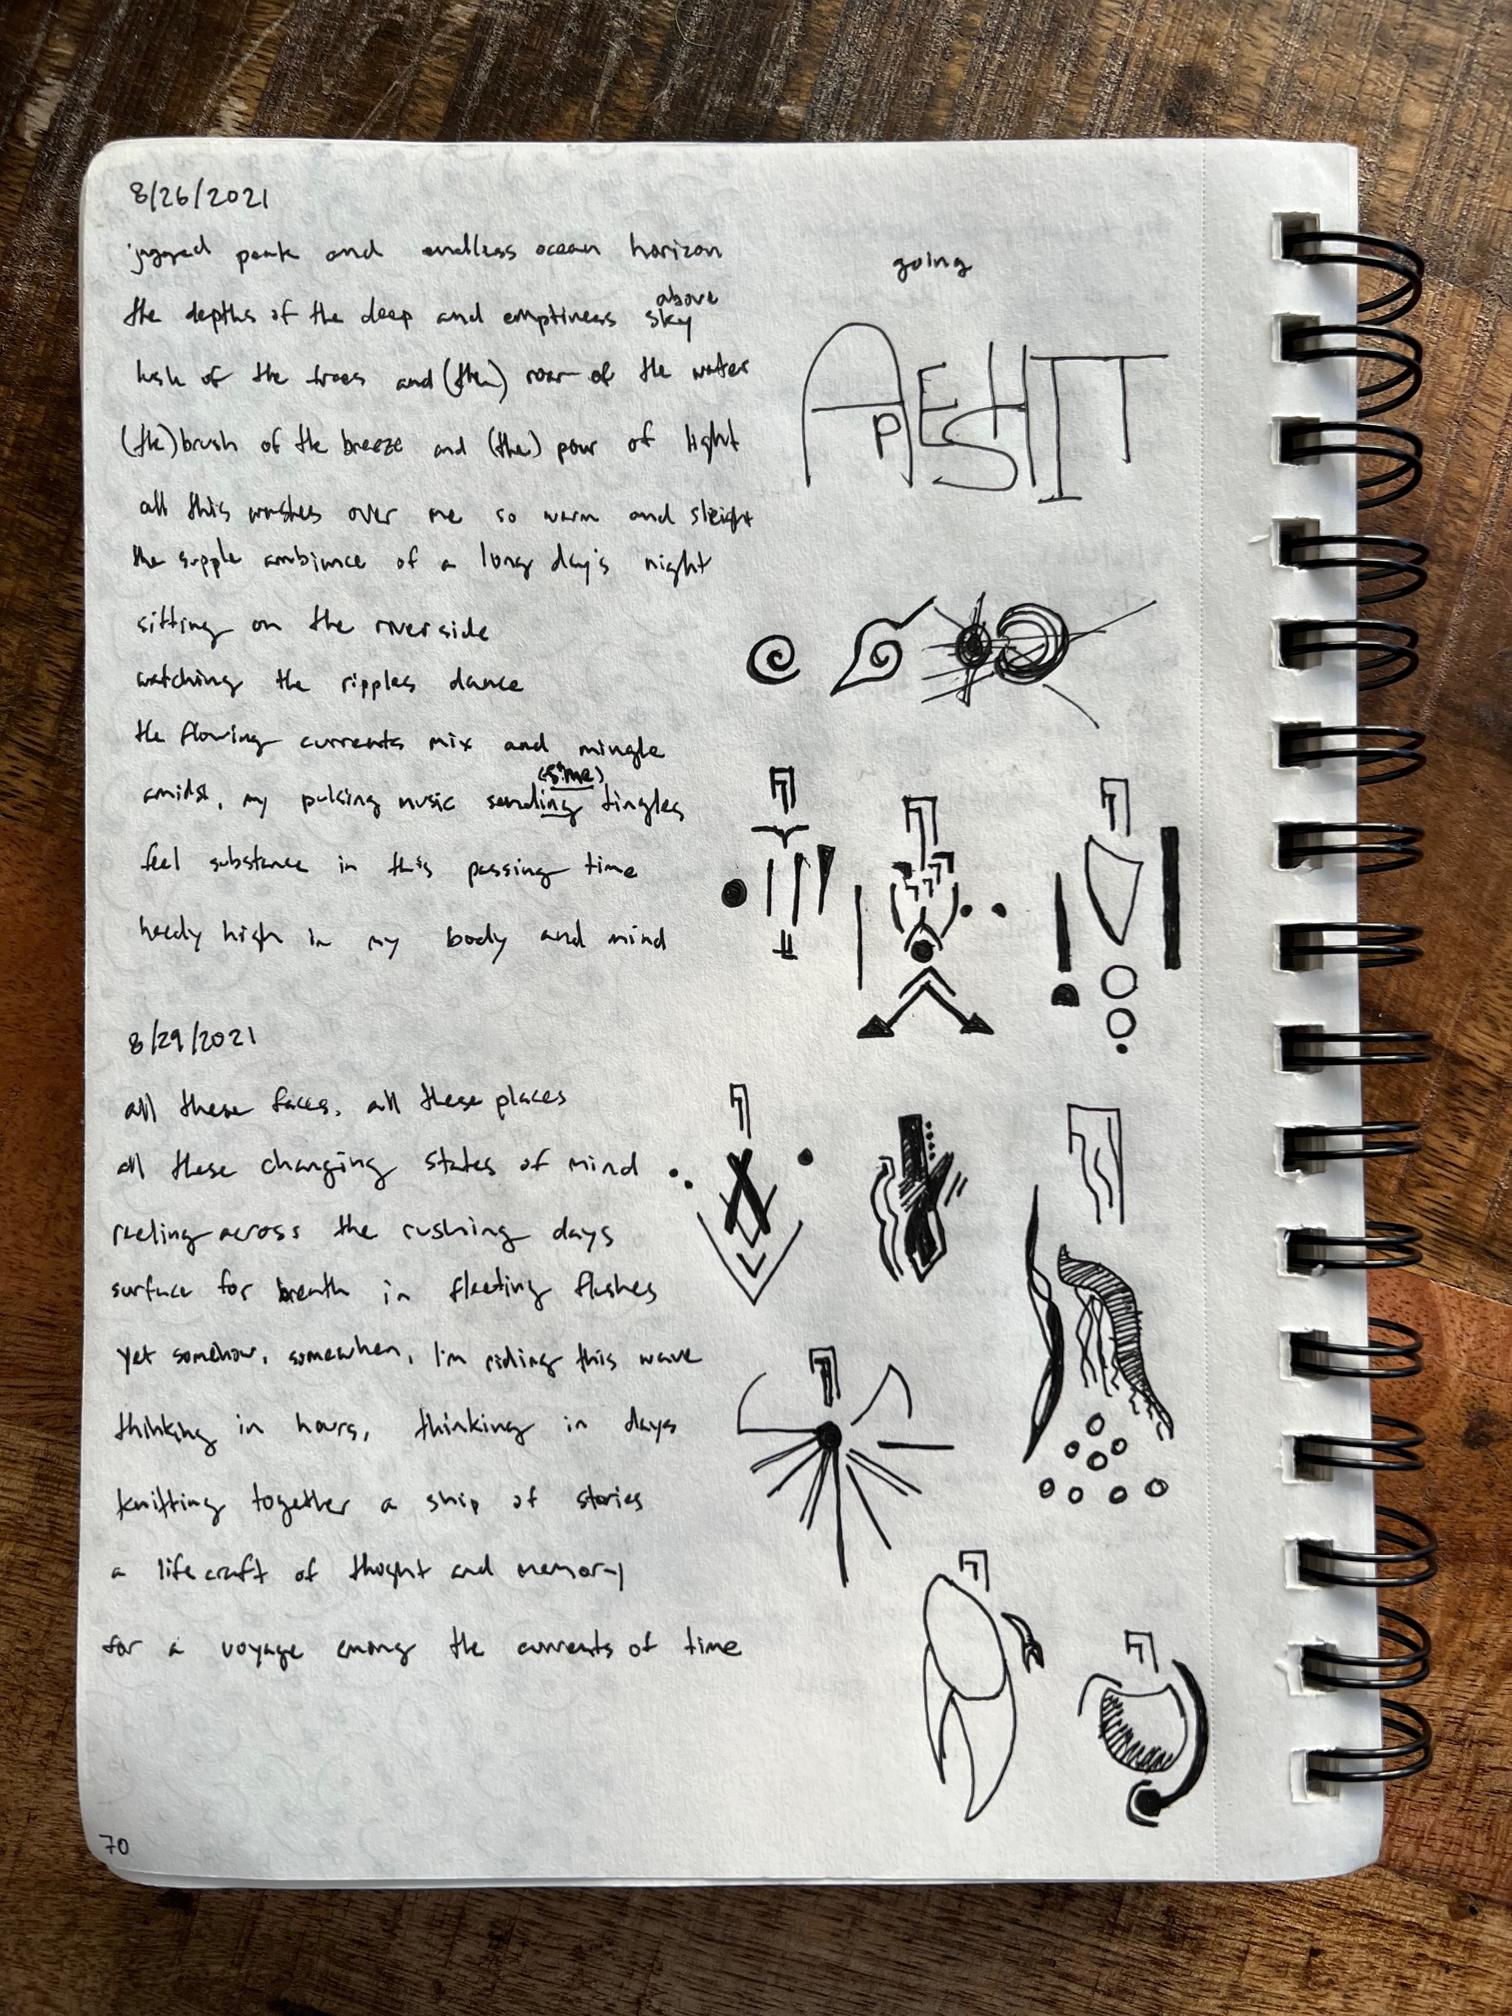 8/26/2021
jagged peak and endless ocean horizon
the depths of the deep and emptiness sky above
hush of the trees and (the) roar of the water
(the) brush of the breeze and (the) pour of light
all this washes over me so warm and sleight
the supple ambiance of a long day's night
sitting on the riverside
watching the ripples dance
the flowing currents mix and mingle
amidst, my pulsing music sending tingles
feel substance in this passing time
heedy high in my body and mind
8/29/2021
all these faces, all these places
all these changing states of mind
reeling across the rushing days
surface for breath in fleeting flashes
yet somehow, somewhen, I'm riding this wave
thinking in hours, thinking in days
knitting together a ship of stories
a lifecraft of thoght and memory
for a voyage among the currents of time
70
going
APESHIT